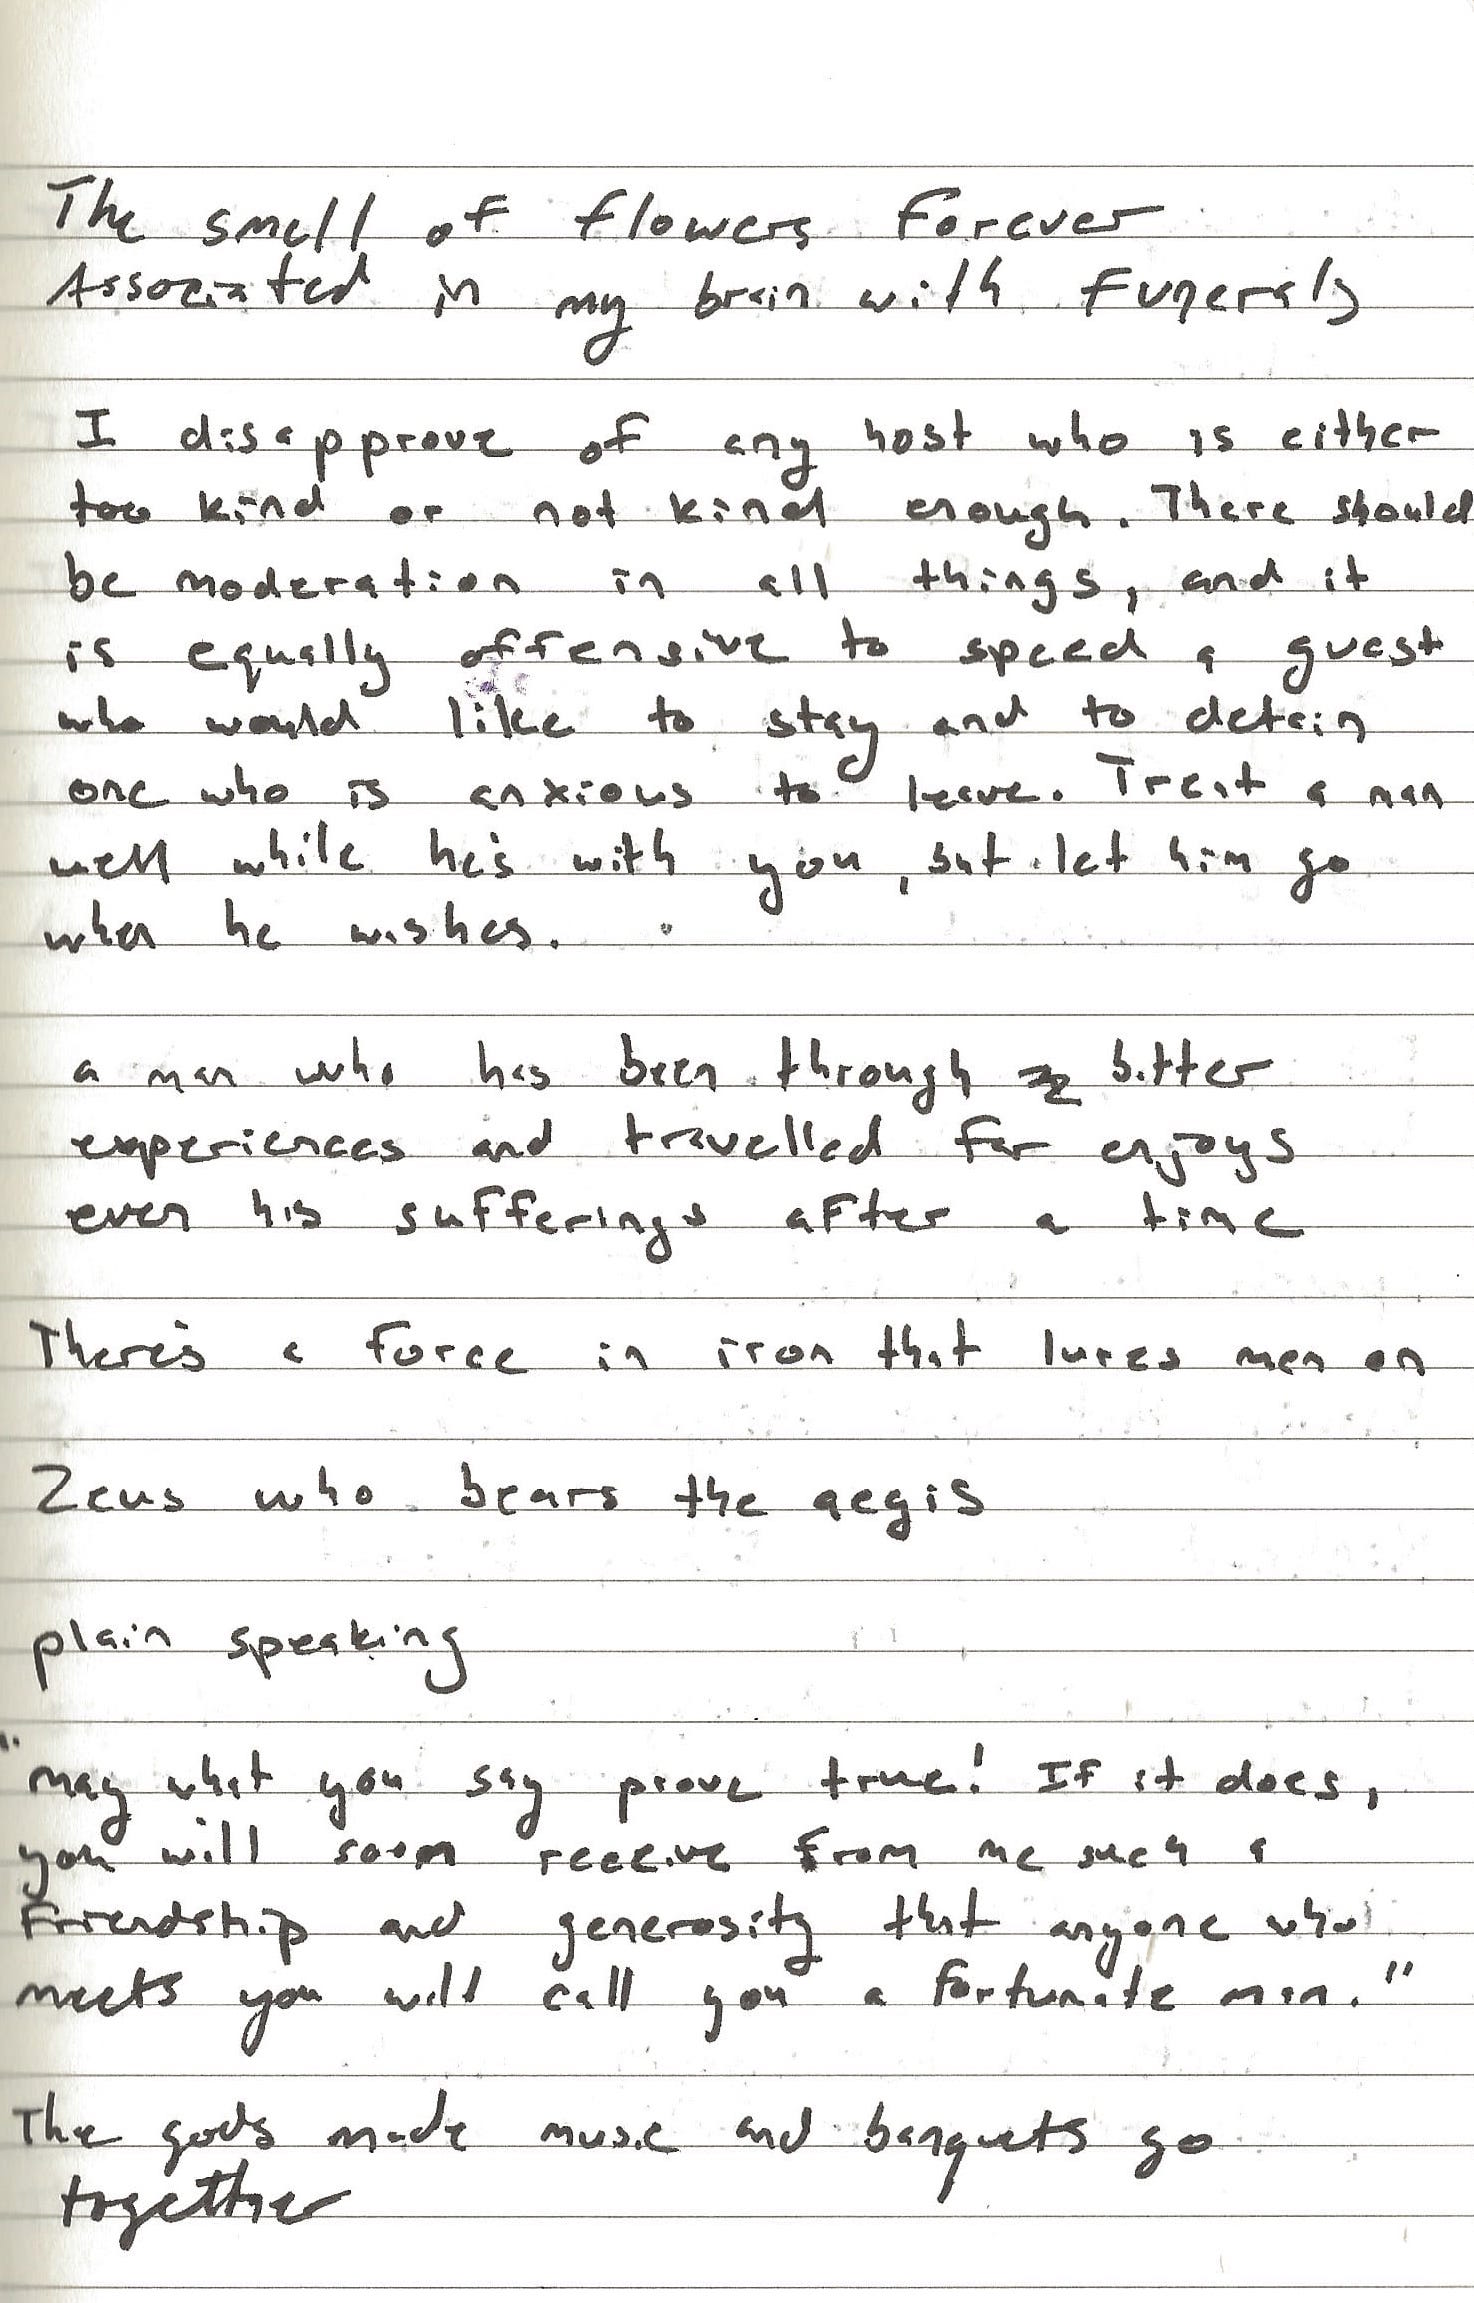 The smell of flowers forever
Associated in my brain with funerals
I disapprove of any host who is either
too kind or not kind enough. There should
be moderation in all things, and it
is equally offensive to speed a guest
who would like to stay and to detain
one who is anxious to leave. Treat a man
well while he's with you, but let him go
when he wishes.
a man who has been through bitter
experiences and travelled far enjoys
even his sufferings after a time
There's a force in iron that lures men on
Zeus who bears the aegis
plain speaking
"may what you say prove true! If it does,
you will soon receive from me such a
friendship and generosity that anyone who
meets you will call you a fortunate man."
The gods made music and banquets go
together